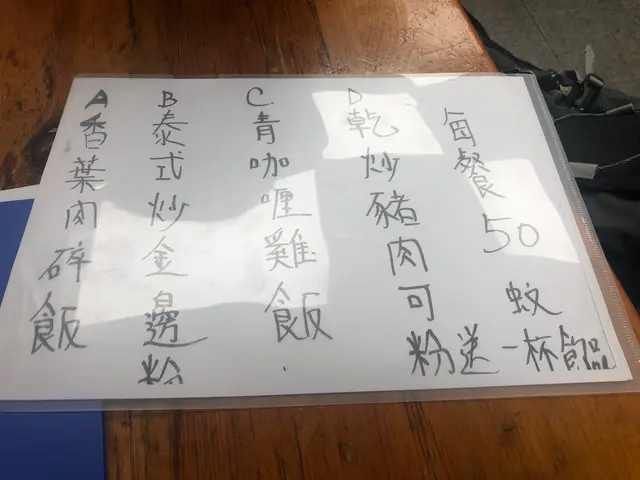 A 香葉肉碎飯
B 泰式炒金邊粉
C. 青咖喱雞飯
D 乾炒豬肉可粉
每餐50蚊
送一杯飲品